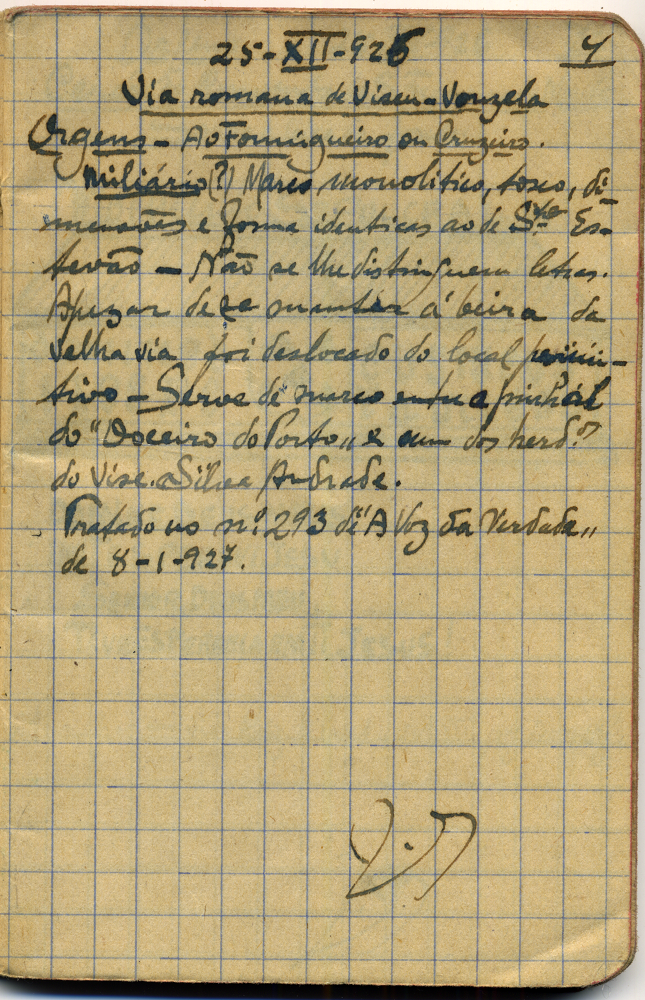 25-XII-926 7
Via romana de Viseu-Vouzela
Orgens - Ao Formigueiro ou Cruzeiro.
Miliário (?) Marco monolitico, tosco, di-
mensões e forma identicas ao de Sto Es-
tevão - Não se lhe distinguem letras.
Apezar de se manter á beira da
velha via foi deslocado do local primi-
tivo - Serve de marco entre a pinhal
do "Doceiro do Porto" e um dos herd.os
do Visc. Silva Andrade.
Tratado no nº 293 de "A Voz da Verdade"
de 8-1-927.